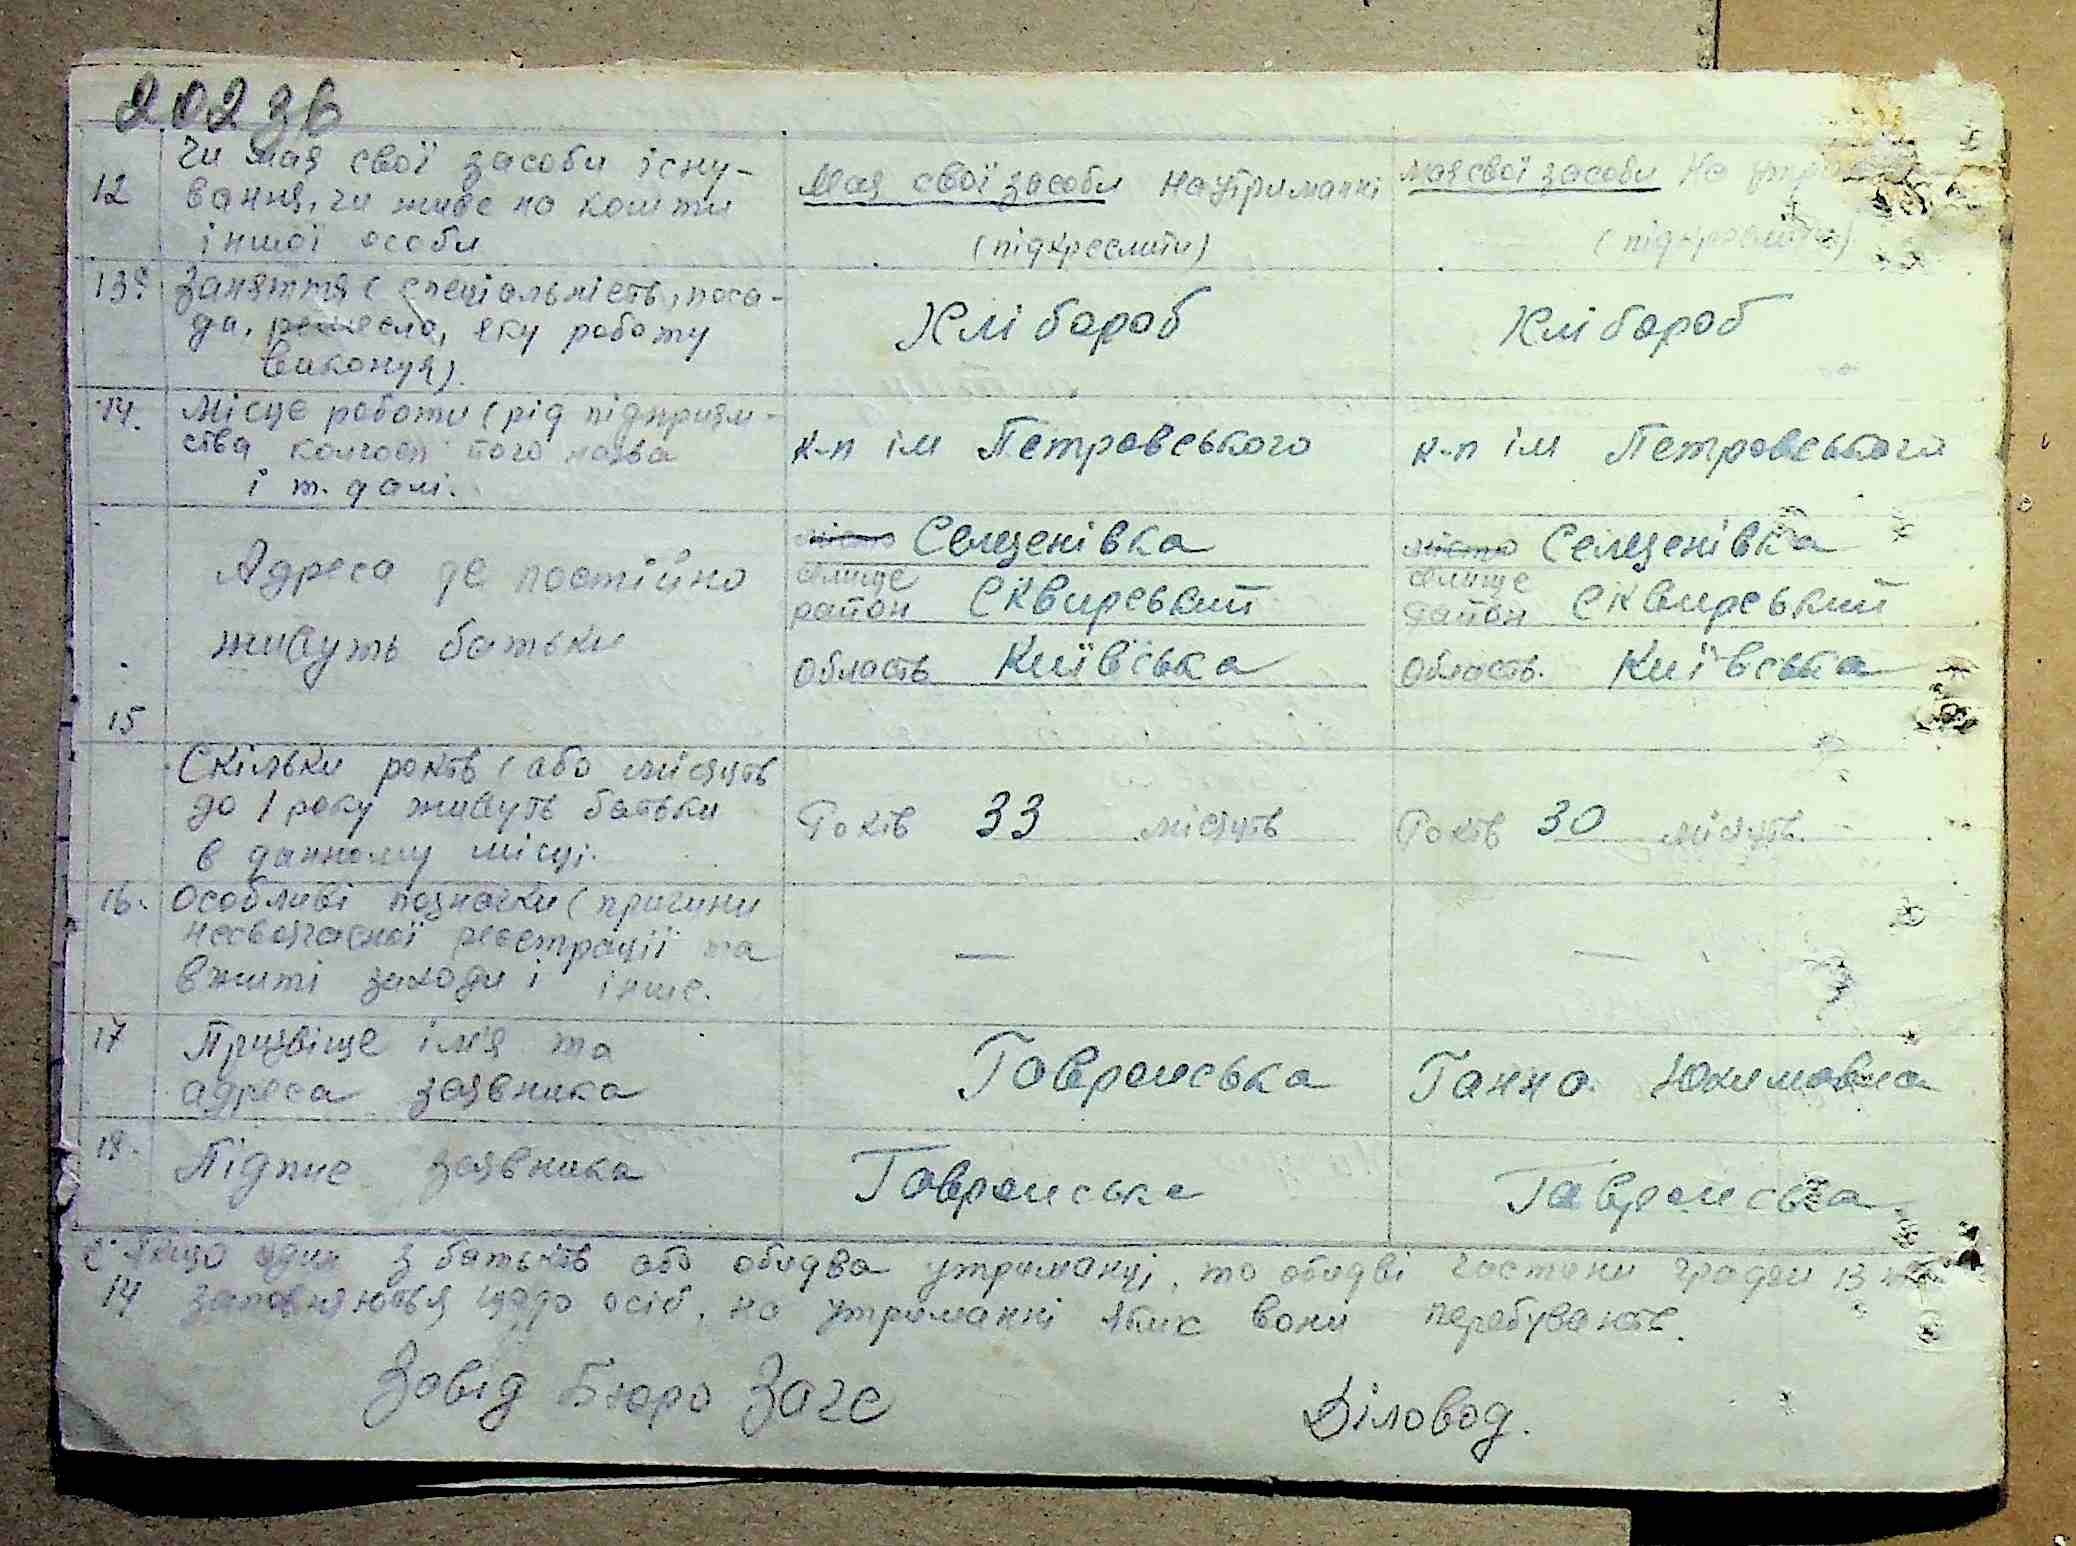 202 зв
12 Чи має свої засоби існу-
вання, чи живе на кошти
іншої особи
Має свої засоби на утриманні
(підкреслити)
має свої засоби на
(підкреслити)
13. Заняття (спеціальність, поса-
да, ремесло, яку роботу
виконує).
Хлібороб
Хлібороб
14. Місце роботи (рід підприєм-
ства колгосп його назва
і т. далі.
к-п ім Петровського
к-п ім Петровського
15
Адреса де постійно
живуть батьки
місто Селщенівка
селище
район Сквирський
область Київська
місто Селщенівка
селище
район Сквирський
область. Київська
Скільки років (або місяців
до 1 року живуть батьки
в данному місці.
Років 33 місяців
Років 30 місяців
16. Особливі позначки (причини
несвоєчасної реєстрації та
вжиті заходи і інше.
—
—
17 Призвіще ім'я та
адреса заявника
Гавронська
Ганна Юхимовна
18. Підпис заявника
Гавронська
Гавронська
Якщо один з батьків або обидва утриманці, то обидві частини графи 13
14 заповнюються щодо осіб, на утриманні яких вони перебувають.
Завід Бюро Загс
Діловод.